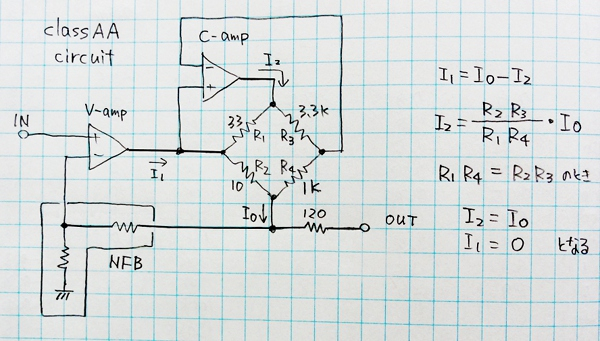 classAA
circuit
C-amp
I₂
V-amp
IN
−
+
+
−
33
R₁
3.3k
R₃
R₂
10
R₄
1K
I₁
I₀↓
120
OUT
NFB
I₁ = I₀ − I₂
I₂ = R₂ R₃ / R₁ R₄ · I₀
R₁ R₄ = R₂ R₃ のとき
I₂ = I₀
I₁ = 0 となる